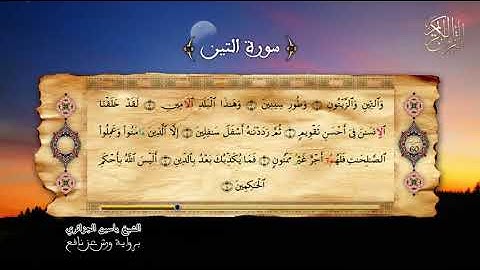 القرآن الكريم
﴿ سورة التين ﴾
وَالتِّينِ وَالزَّيْتُونِ ۝ وَطُورِ سِينِينَ ۝ وَهَٰذَا ٱلْبَلَدِ ٱلَامِينِ ۝ لَقَدْ خَلَقْنَا
ٱلِانسَٰنَ فِي أَحْسَنِ تَقْوِيمٖ ۝ ثُمَّ رَدَدْنَٰهُ أَسْفَلَ سَٰفِلِينَ ۝ إِلَّا ٱلَّذِينَ ءَامَنُواْ وَعَمِلُواْ
ٱلصَّٰلِحَٰتِ فَلَهُمُۥٓ أَجْرٌ غَيْرُ مَمْنُونٖ ۝ فَمَا يُكَذِّبُكَ بَعْدُ بِالدِّينِ ۝ أَلَيْسَ ٱللَّهُ بِأَحْكَمِ
ٱلْحَٰكِمِينَ ۝
الشيخ ياسين الجزائري
برواية ورش عن نافع